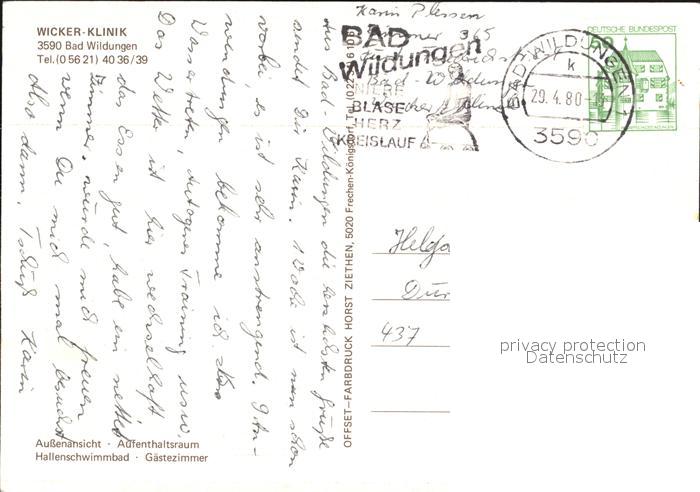 WICKER-KLINIK
3590 Bad Wildungen
Tel. (0 56 21) 40 36/39
Aus Bad-Wildungen die herzlichsten Grüße
sendet Dir Karin. 1 Woche ist nun schon
vorbei, es ist sehr anstrengend. 9 An-
wendungen bekomme ich.
Wassertreten, Autogenes Training usw.
Das Wetter ist hier wechselhaft
das Essen gut, habe ein nettes
Zimmer. würde mich freuen
wenn Du mich mal besuchst
Also dann, Tschüß Karin
Außenansicht · Aufenthaltsraum
Hallenschwimmbad · Gästezimmer
OFFSET-FARBDRUCK HORST ZIETHEN, 5020 Frechen-Königsdorf, Tel.
Karin Plessen
365
Bad-Wildungen
BAD
Wildungen
NIERE
BLASE
HERZ
KREISLAUF
BAD WILDUNGEN 1
k
29.4.80
3590
DEUTSCHE BUNDESPOST
50
Helga
Dur
437
privacy protection
Datenschutz